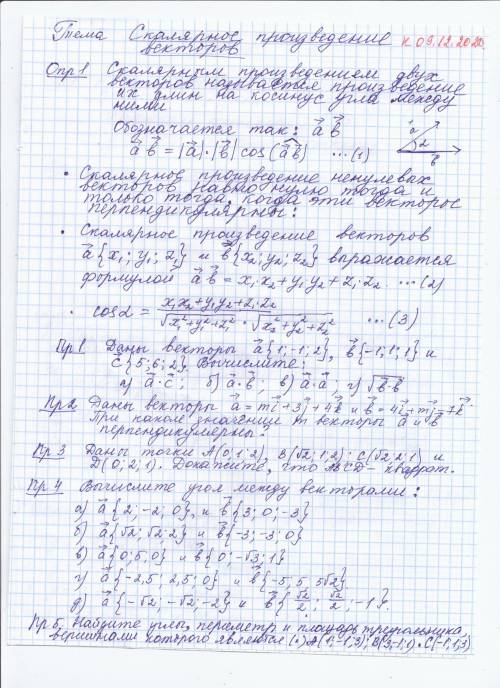 Тема Скалярное произведение к 09.12.2020
векторов
Опр 1 Скалярным произведением двух
векторов называется произведение
их длин на косинус угла между
ними
Обозначается так: a⃗ b⃗
a⃗ b⃗ = |a⃗|·|b⃗| cos(a⃗ b⃗) ...(1)
a α b
• Скалярное произведение ненулевых
векторов равно нулю тогда и
только тогда, когда эти векторы
перпендикулярны:
• Скалярное произведение векторов
a⃗{x₁; y₁; z₁} и b⃗{x₂; y₂; z₂} выражается
формулой a⃗ b⃗ = x₁x₂ + y₁y₂ + z₁z₂ ...(2)
• cos α = (x₁x₂ + y₁y₂ + z₁z₂) / (√(x₁² + y₁² + z₁²) · √(x₂² + y₂² + z₂²)) ...(3)
Пр 1 Даны векторы a⃗{1; -1; 2}, b⃗{-1; 1; 1} и
c⃗{5; 6; 2}. Вычислите:
а) a⃗·c⃗; б) a⃗·b⃗; в) a⃗·a⃗; г) √(b⃗·b⃗)
Пр 2 Даны векторы a⃗ = mi⃗ + 3j⃗ + 4k⃗ и b⃗ = 4i⃗ + mj⃗ - 7k⃗.
При каком значении m векторы a⃗ и b⃗
перпендикулярны?
Пр 3 Даны точки A(0; 1; 2), B(√2; 1; 2), C(√2; 2; 1) и
D(0; 2; 1). Докажите, что ABCD - квадрат.
Пр 4 Вычислите угол между векторами:
а) a⃗{2; -2; 0} и b⃗{3; 0; -3}
б) a⃗{√2; √2; 2} и b⃗{-3; -3; 0}
в) a⃗{0; 5; 0} и b⃗{0; -√3; 1}
г) a⃗{-2,5; 2,5; 0} и b⃗{-5; 5; 5√2}
д) a⃗{-√2; -√2; -2} и b⃗{√2/2; √2/2; -1}.
Пр 5. Найдите углы, периметр и площадь треугольника,
вершинами которого являются (·) A(1; -1; 3); B(3; -1; 1) · C(-1; 1; 3)